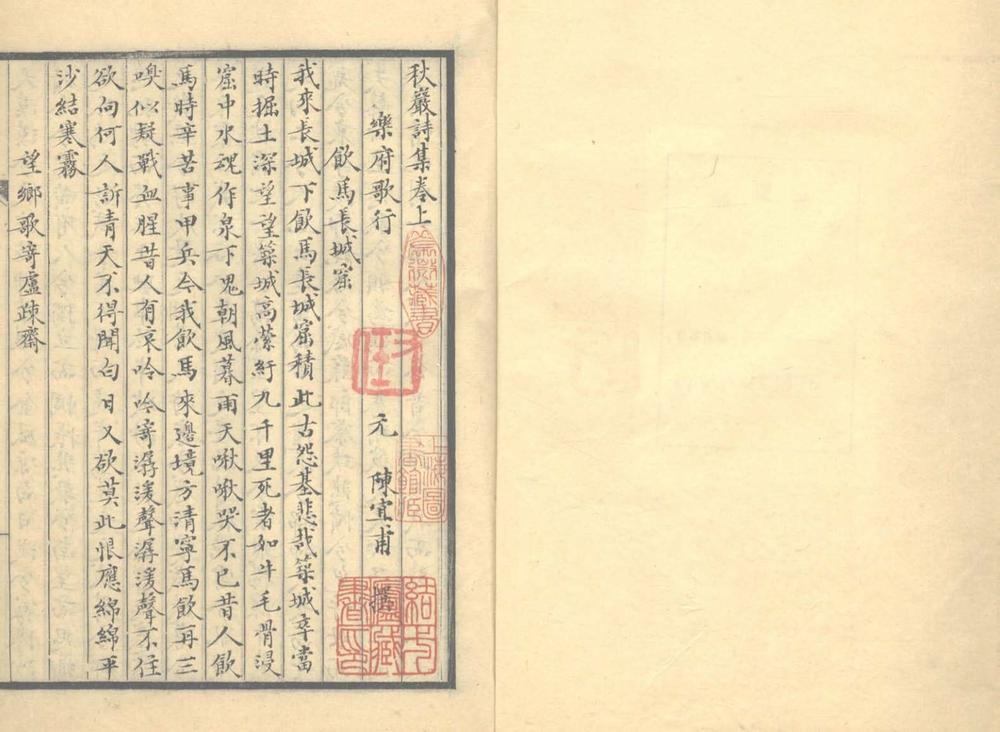 秋巖詩集卷上
樂府歌行 元 陳宜甫 撰
飲馬長城窟
我來長城下飲馬長城窟積此古怨基悲哉築城卒當
時掘土深望望築城高縈紆九千里死者如牛毛骨浸
窟中水魂作泉下鬼朝風暮雨天啾啾哭不已昔人飲
馬時辛苦事甲兵今我飲馬來邊境方清寧馬飲再三
嗅似疑戰血腥昔人有哀吟吟寄潺湲聲潺湲聲不住
欲向何人訴青天不得聞白日又欲莫此恨應綿綿平
沙結寒霧
望鄉歌寄盧疎齋
上海圖
書館藏
結一
廬藏
書印